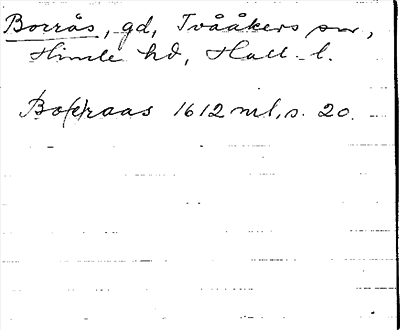 Borrås, gd, Tvååkers sn,
Himle hd, Hall. l.
Bo(r)raas 1612 ml, s. 20.